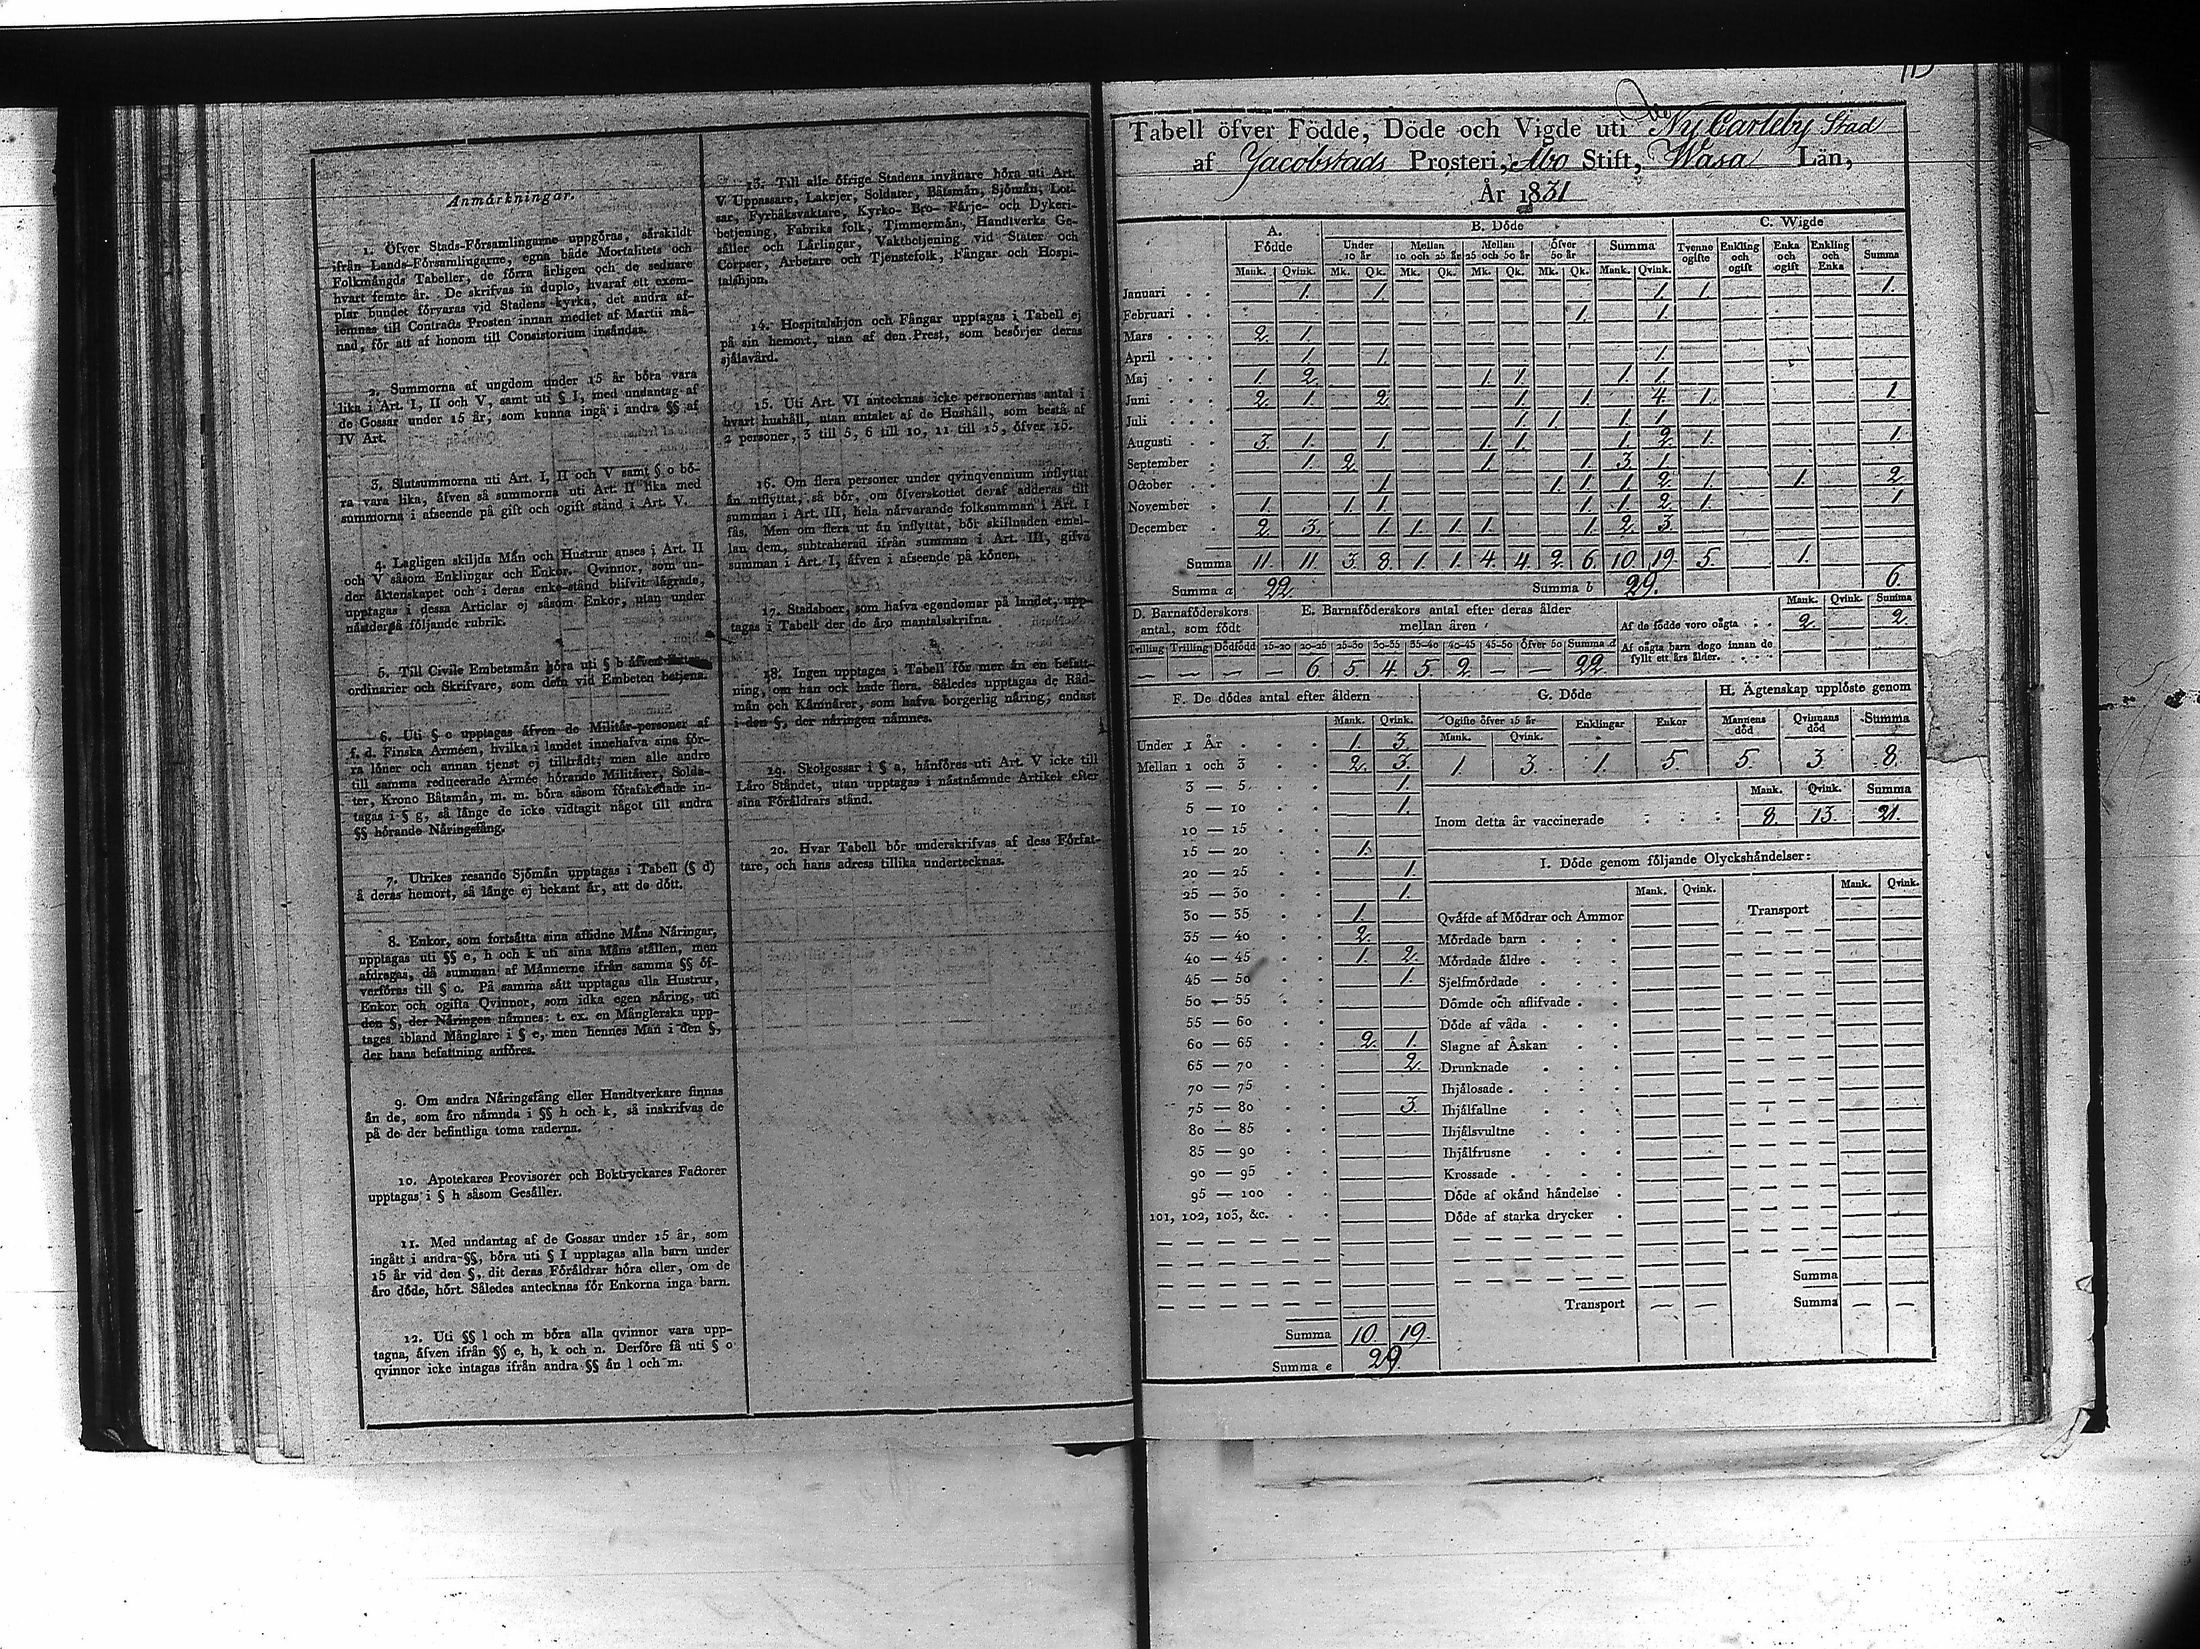 Anmärkningar.
1. Öfver Stads-Församlingarne uppgöras, särskildt
ifrån Lands-Församlingarne, egna både Mortalitets och
Folkmängds Tabeller, de förra årligen och de sednare
hvart femte år. De skrifvas in duplo, hvaraf ett exem-
plar bundet förvaras vid Stadens kyrka, det andra af-
lemnas till Contracts Prosten innan mediet af Martii må-
nad, för att af honom till Consistorium insändas.
2. Summorna af ungdom under 15 år böra vara
lika i Art. I, II och V, samt uti § I, med undantag af
de Gossar under 15 år, som kunna ingå i andra §§ af
IV Art.
3. Slutsummorna uti Art. I, II och V samt § o bö-
ra vara lika, äfven så summorna uti Art. II lika med
summorna i afseende på gift och ogift stånd i Art. V.
4. Lagligen skiljda Män och Hustrur anses i Art. II
och V såsom Enklingar och Enkor. Qvinnor, som un-
der äktenskapet och i deras enke-stånd blifvit lägrade,
upptagas i dessa Articlar ej såsom Enkor, utan under
nästderpå följande rubrik.
5. Till Civile Embetsmän höra uti § b äfven
ordinarier och Skrifvare, som dem vid Embeten betjena.
6. Uti § o upptagas äfven de Militär-personer af
f. d. Finska Arméen, hvilka i landet innehafva sina för-
ra löner och annan tjenst ej tillträdt; men alle andre
till samma reducerade Armée hörande Militärer, Solda-
ter, Krono Båtsmän, m. m. böra såsom förafskedade in-
tagas i § g, så länge de icke vidtagit något till andra
§§ hörande Näringsfång.
7. Utrikes resande Sjömän upptagas i Tabell (§ d)
å deras hemort, så länge ej bekant är, att de dött.
8. Enkor, som fortsätta sina aflidne Mäns Näringar,
upptagas uti §§ e, h och k uti sina Mäns ställen, men
afdragas, då summan af Männerne ifrån samma §§ öf-
verföras till § o. På samma sätt upptagas alla Hustrur,
Enkor och ogifta Qvinnor, som idka egen näring, uti
den §, der Näringen nämnes: t. ex. en Månglerska upp-
tages ibland Månglare i § e, men hennes Man i den §,
der hans befattning anföres.
9. Om andra Näringsfång eller Handtverkare finnas
än de, som äro nämnda i §§ h och k, så inskrifvas de
på de der befintliga toma raderna.
10. Apotekares Provisorer och Boktryckares Factorer
upptagas i § h såsom Gesäller.
11. Med undantag af de Gossar under 15 år, som
ingått i andra §§, böra uti § I upptagas alla barn under
15 år vid den §, dit deras Föräldrar höra eller, om de
äro döde, hört. Således antecknas för Enkorna inga barn.
12. Uti §§ l och m böra alla qvinnor vara upp-
tagna, äfven ifrån §§ e, h, k och n. Derföre få uti § o
qvinnor icke intagas ifrån andra §§ än l och m.
13. Till alle öfrige Stadens invånare höra uti Art.
V Uppassare, Lakejer, Soldater, Båtsmän, Sjömän, Lot-
sar, Fyrbåksvaktare, Kyrko- Bro- Färje- och Dykeri-
betjening, Fabriks folk, Timmermän, Handtverks Ge-
säller och Lärlingar, Vaktbetjening vid Stater och
Corpser, Arbetare och Tjenstefolk, Fångar och Hospi-
talshjon.
14. Hospitalshjon och Fångar upptagas i Tabell ej
på sin hemort, utan af den Prest, som besörjer deras
själavård.
15. Uti Art. VI antecknas icke personernas antal i
hvart hushåll, utan antalet af de Hushåll, som bestå af
2 personer, 3 till 5, 6 till 10, 11 till 15, öfver 15.
16. Om flera personer under qvinqvennium inflyttat
än utflyttat, så bör, om öfverskottet deraf adderas till
summan i Art. III, hela närvarande folksumman i Art. I
fås. Men om flera ut än inflyttat, bör skillnaden emel-
lan dem, subtraherad ifrån summan i Art. III, gifva
summan i Art. I, äfven i afseende på könen.
17. Stadsboer, som hafva egendomar på landet, upp-
tagas i Tabell der de äro mantalsskrifna.
18. Ingen upptages i Tabell för mer än en befatt-
ning, om han ock hade flera. Således upptagas de Råd-
män och Kämnärer, som hafva borgerlig näring, endast
i den §, der näringen nämnes.
19. Skolgossar i § a, hänföres uti Art. V icke till
Läro Ståndet, utan upptagas i nästnämnde Artikel efter
sina Föräldrars stånd.
20. Hvar Tabell bör underskrifvas af dess Förfat-
tare, och hans adress tillika undertecknas.
Tabell öfver Födde, Döde och Vigde uti Ny Carleby Stad
af Jacobstads Prosteri, Åbo Stift, Wasa Län,
År 1831
A. Födde B. Döde C. Wigde
Under 10 år Mellan 10 och 25 år Mellan 25 och 50 år Öfver 50 år Summa Tvenne ogifte Enkling och ogift Enka och ogift Enkling och Enka Summa
Mank. Qvink. Mk. Qk. Mk. Qk. Mk. Qk. Mk. Qk. Mank. Qvink.
Januari . . 1. 1. 1. 1. 1.
Februari . . 1. 1.
Mars . . . 2. 1.
April . . . 1. 1. 1.
Maj . . . 1. 2. 1. 1. 1. 1.
Juni . . . 2. 1. 2. 1. 1. 4. 1. 1.
Juli . . . 1. 1. 1. 1.
Augusti . . 3. 1. 1. 1. 1. 1. 2. 1. 1.
September . 1. 2. 1. 1. 3. 1.
October . . 1. 1. 1. 1. 2. 1. 1. 2.
November . 1. 1. 1. 1. 1. 2. 1. 1.
December . 2. 3. 1. 1. 1. 1. 1. 2. 3.
Summa 11. 11. 3. 8. 1. 1. 4. 4. 2. 6. 10. 19. 5. 1.
Summa a 22. Summa b 29. 6.
D. Barnaföderskors antal, som födt
Tvilling Trilling Dödfödd
— — —
E. Barnaföderskors antal efter deras ålder mellan åren
15-20 20-25 25-30 30-35 35-40 40-45 45-50 Öfver 50 Summa d
— 6. 5. 4. 5. 2. — — 22
Mank. Qvink. Summa
Af de födde voro oägta . . 2. 2.
Af oägta barn dogo innan de
fyllt ett års ålder. . . .
F. De dödes antal efter åldern
Mank. Qvink.
Under 1 År . . . 1. 3.
Mellan 1 och 3 . . 2. 3.
3 — 5 . . 1.
5 — 10 . . 1.
10 — 15 . .
15 — 20 . . 1.
20 — 25 . . 1.
25 — 30 . . 1.
30 — 35 . . 1.
35 — 40 . . 2.
40 — 45 . . 1. 2.
45 — 50 . . 1.
50 — 55 . .
55 — 60 . .
60 — 65 . . 2. 1.
65 — 70 . . 2.
70 — 75 . .
75 — 80 . . 3.
80 — 85 . .
85 — 90 . .
90 — 95 . .
95 — 100 . .
101, 102, 103, &c. . .
Summa 10 19.
Summa e 29
G. Döde
Ogifte öfver 15 år Enklingar Enkor
Mank. Qvink.
1. 3. 1. 5.
H. Ägtenskap upplöste genom
Mannens död Qvinnans död Summa
5. 3. 8.
Mank. Qvink. Summa
Inom detta år vaccinerade 8. 13. 21.
I. Döde genom följande Olyckshändelser:
Mank. Qvink. Mank. Qvink.
Qväfde af Mödrar och Ammor Transport
Mördade barn . . .
Mördade äldre . . .
Sjelfmördade . . .
Dömde och aflifvade . .
Döde af våda . . .
Slagne af Åskan . .
Drunknade . . .
Ihjälosade . . . .
Ihjälfallne . . .
Ihjälsvultne . . .
Ihjälfrusne . . .
Krossade . . . .
Döde af okänd händelse .
Döde af starka drycker .
Summa
Transport — — Summa — —